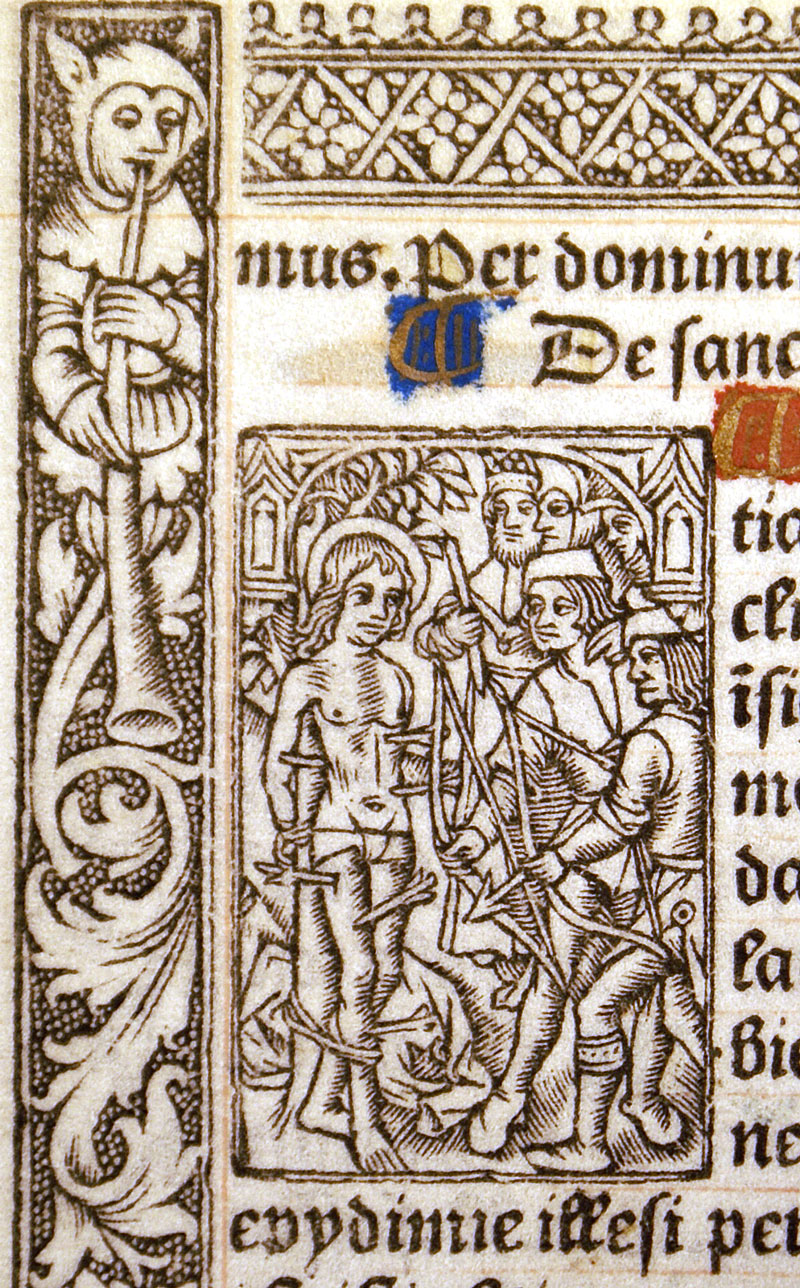 mus. Per dominu
De sanc
tia
cle
isi
me
da
la
bie
ne
epydimie illesi per